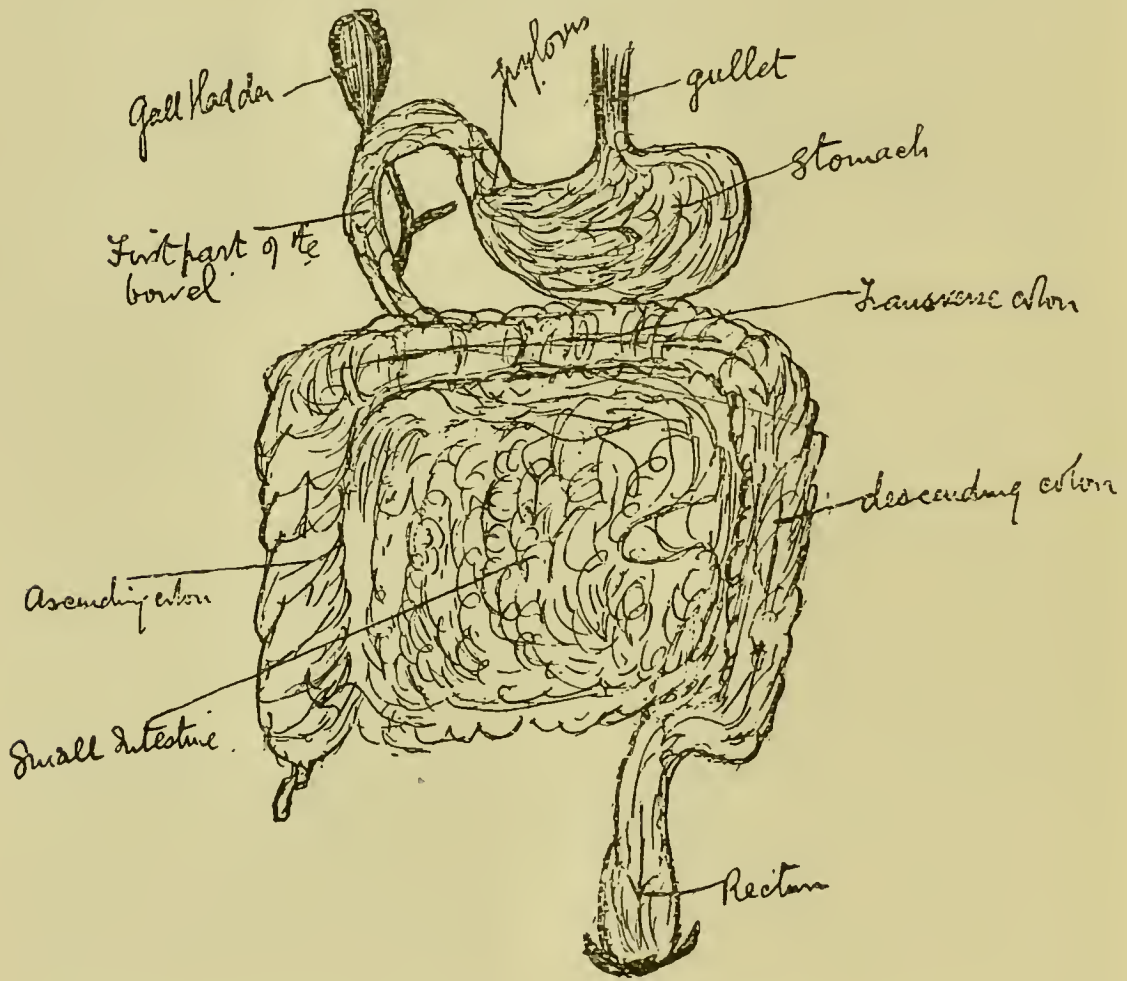 pylorus
gullet
Gall bladder
Stomach
First part of the
bowel
Transverse colon
descending colon
Ascending colon
Small Intestine.
Rectum